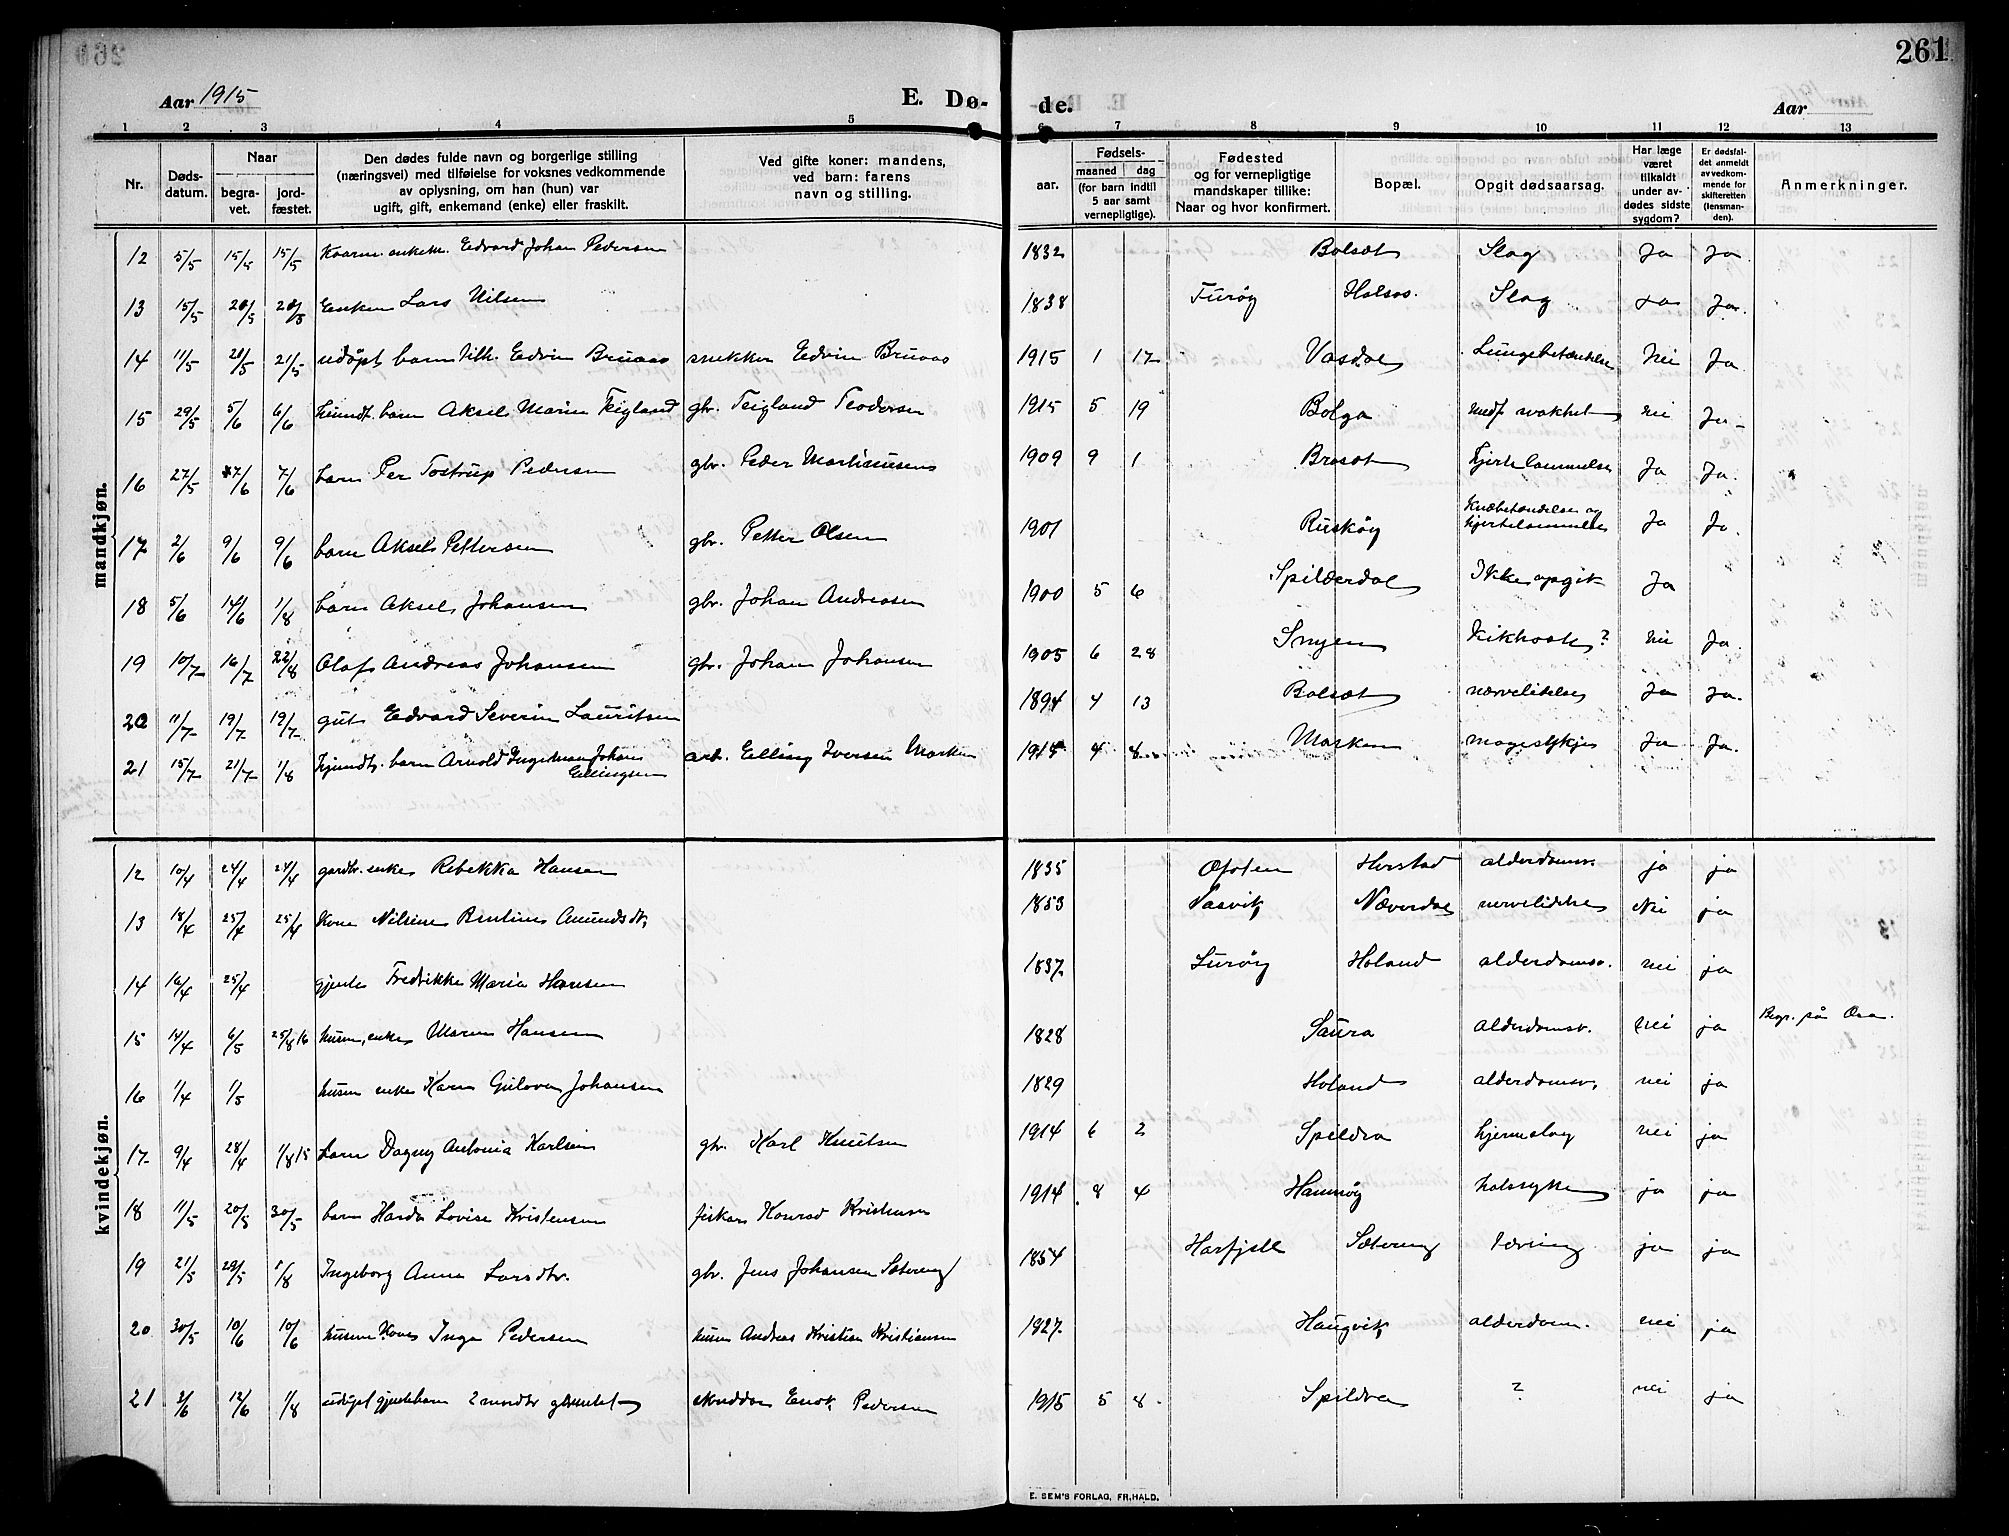 261
Aar 1915 E. Dø- de. Aar
1 2 3 4 5 6 7 8 9 10 11 12 13
Nr. Døds-datum. Naar begra-vet. jord-fæstet. Den dødes fulde navn og borgerlige stilling (næringsvei) med tilføielse for voksnes vedkommende av oplysning, om han (hun) var ugift, gift, enkemand (enke) eller fraskilt. Ved gifte koner: mandens, ved barn: farens navn og stilling. aar. Fødsels- maaned dag (for barn indtil 5 aar samt vernepligtige). Fødested og for vernepligtige mandskaper tillike: Naar og hvor konfirmert. Bopæl. Opgit dødsaarsag. Har læge været tilkaldt under av-dødes sidste sygdom? Er dødsfal-det anmeldt av vedkom-mende for skifteretten (lensman-den). Anmerkninger.
mandkjøn.
12 5/5 15/5 15/5 Edvard Johan Pedersen 1832 Bolsæt Slag Ja Ja
13 15/5 20/5 20/5 Enkem Lars Nilsen 1838 Halsos. Slag Ja Ja.
14 11/5 20/5 21/5 udöpt barn tilh. Edvin Bruaas snekker Edvin Bruaas 1915 1 17 Vasdal Lungebetændelse Nei Ja
15 29/5 5/6 6/6 barn Aksel Marin Teigland gbr. Teigland Teodorsen 1915 5 19 Bolga medf. svakhet nei Ja
16 27/5 7/6 7/6 barn Per Tostrup Pedersen gbr. Peder Martinusens 1909 9 1 Brasæt Hjertelammelse Ja Ja.
17 2/6 9/6 9/6 barn Aksel Pettersen gbr. Petter Olsen 1901 Ruskøy Knæbetændelse og hjertelammelse Ja Ja.
18 5/6 14/6 1/8 barn Aksel Johansen gbr. Johan Andreasen 1900 5 6 Spilderdal Ikke opgit Ja
19 10/7 16/7 22/8 Olaf Andreas Johansen gbr. Johan Johansen 1905 6 28 Kikhoste? nei Ja.
20 11/7 19/7 19/7 gut Edvard Severin Lauritsen 1894 4 13 Bolsæt nervelidelse Ja Ja.
21 15/7 21/7 1/8 barn Arnold Ingeman Johans Ellingsen arb. Elling Iversen Marken 1914 4 8 Marken mavesykje Ja Ja.
kvindekjøn.
12 10/4 24/4 24/4 gardbr. enke Rebekka Hansen 1835 Ofoten Herstad alderdomsv. ja ja
13 18/4 25/4 25/4 Kone Nilsine Bentine Amundsdt. 1853 Vasvik Næverdal nervelidelse Nei ja
14 16/4 25/4 gjente Fredrikke Maria Hansen 1837 Lurøy Holand alderdomsv. nei ja
15 14/4 6/5 25/8 16 husm. enke Maren Hansen 1828 Saura alderdomsv. nei ja Begr. på Øsa.
16 1/4 1/5 husm enke Karen Gulova Johansen 1829 Holand alderdomsv. nei ja
17 9/4 28/4 1/8 15 barn Dagny Antonia Karlsen gbr. Karl Knutsen 1914 6 2 Spildra hjerneslag nei ja
18 11/5 20/5 30/5 barn Harda Lovise Kristensen fisker Konrad Kristensen 1914 8 4 Hamnøy halssyke ja ja
19 21/5 29/5 1/8 Ingeborg Anna Larsdtr. gbr. Jens Johansen Sætereng 1854 Harfjell Sætereng tæring ja ja
20 30/5 10/6 10/6 husm. kone Inga Pedersen husm Andreas Kristian Kristiansen 1827 Haugvik alderdom. nei ja
21 2/6 12/6 1/8 udöpt gjentebarn 2 mndr Enok Pedersen 1915 5 8 Spildra ? nei ja
E. SEM'S FORLAG, FR.HALD.